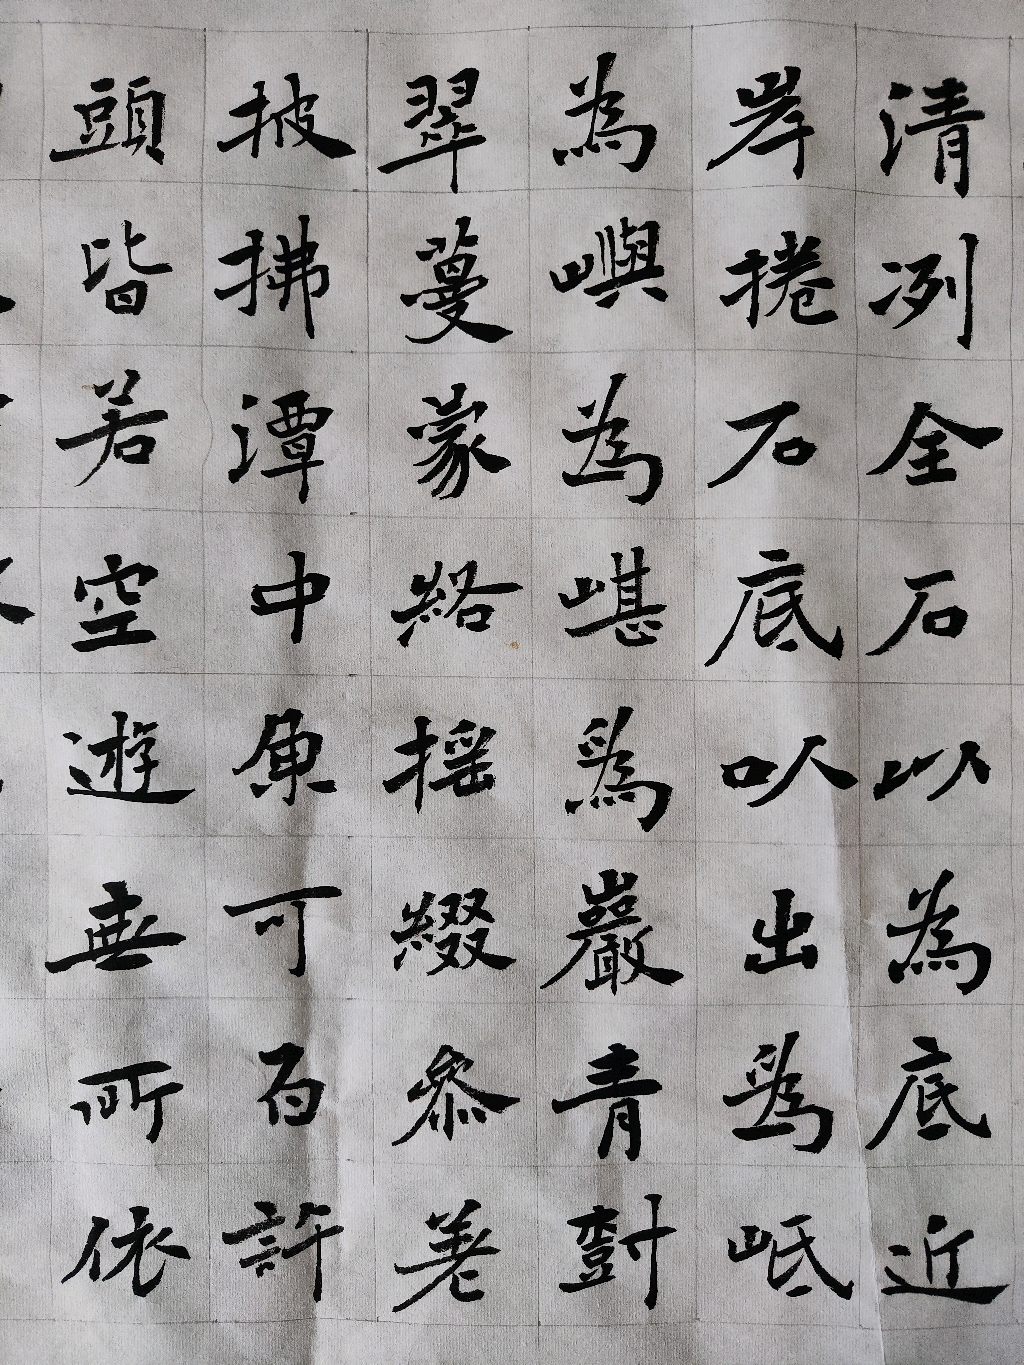 清冽全石以為底近
岸捲石底㕥出為岻
為嶼為嵁為巖青尌
翠蔓蒙絡揺綴參差
披拂潭中魚可百許
頭皆若空遊無所依